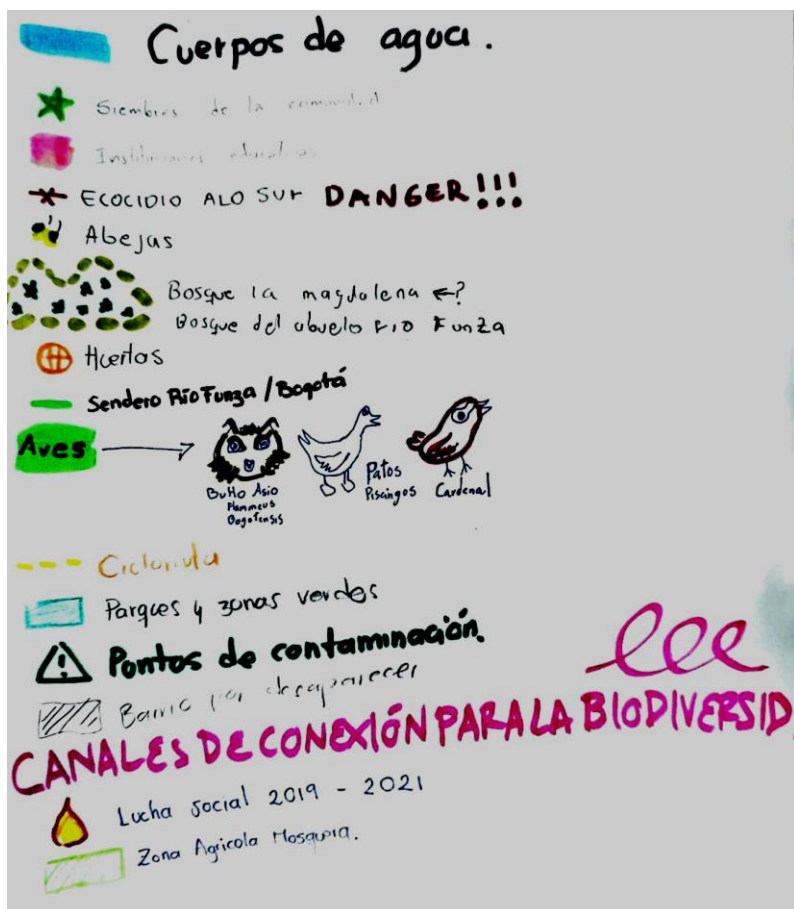 Cuerpos de agua.
Siembras de la comunidad
Instituciones educativas
ECOCIDIO ALO SUR DANGER!!!
Abejas
Bosque la magdalena ←?
Bosque del abuelo río Funza
Huertas
Sendero Río Funza / Bogotá
Aves
BuHo Asio
Flammeus
Bogotensis
Patos
Piscingos
Cardenal
Cicloruta
Parques y zonas verdes
Puntos de contaminación.
Barrio por desaparecer
CANALES DE CONEXIÓN PARA LA BIODIVERSID
Lucha social 2019 - 2021
Zona Agricola Mosquera.